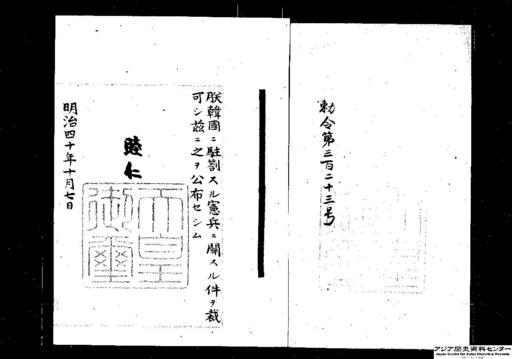 勅令第三百二十三号
朕韓國ニ駐劄スル憲兵ニ關スル件ヲ裁
可シ茲ニ之ヲ公布セシム
睦仁
天皇
御璽
明治四十年十月七日
アジア歴史資料センター
Japan Center for Asian Historical Records